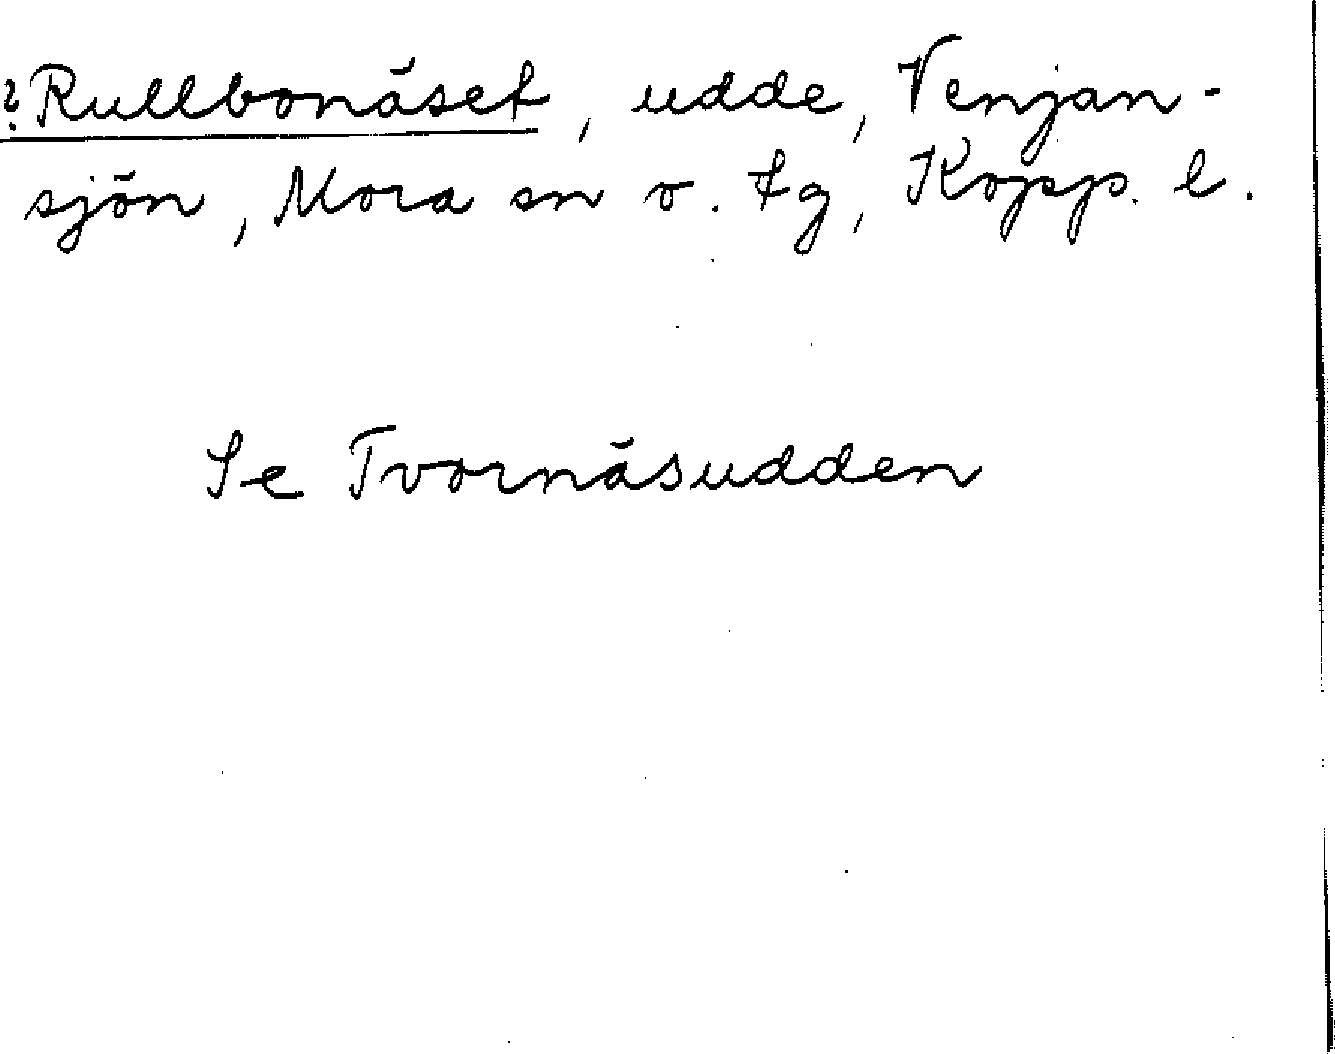 ? Rullbonäset, udde, Venjan-
sjön, Mora sn o. tg, Kopp. l.
Se Tvornäsudden